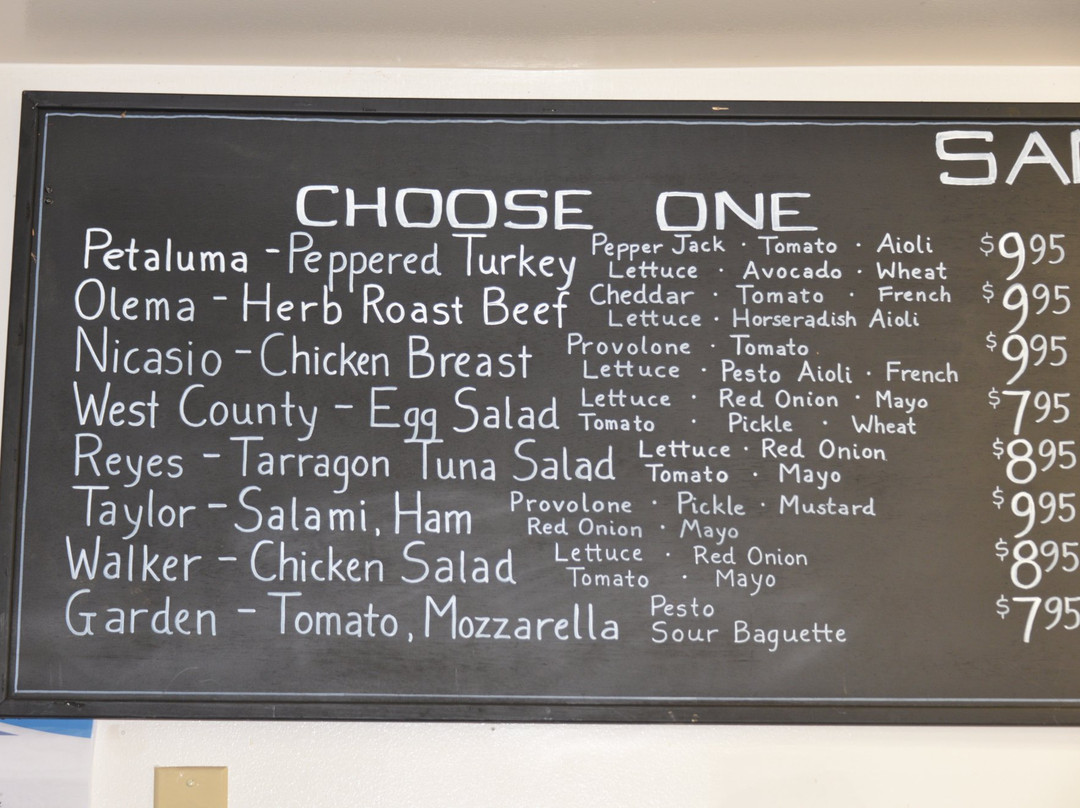 SA
CHOOSE ONE
Petaluma - Peppered Turkey Pepper Jack · Tomato · Aioli $9.95
Lettuce · Avocado · Wheat
Olema - Herb Roast Beef Cheddar · Tomato · French $9.95
Lettuce · Horseradish Aioli
Nicasio - Chicken Breast Provolone · Tomato $9.95
Lettuce · Pesto Aioli · French
West County - Egg Salad Lettuce · Red Onion · Mayo $7.95
Tomato · Pickle · Wheat
Reyes - Tarragon Tuna Salad Lettuce · Red Onion $8.95
Tomato · Mayo
Taylor - Salami, Ham Provolone · Pickle · Mustard $9.95
Red Onion · Mayo
Walker - Chicken Salad Lettuce · Red Onion $8.95
Tomato · Mayo
Garden - Tomato, Mozzarella Pesto $7.95
Sour Baguette